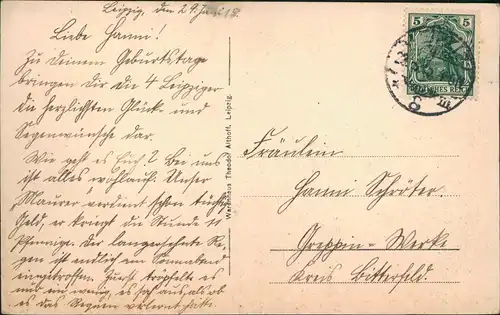 Leipzig, den 29. Juni
Liebe Hanni!
Zu Deinem Geburtstage
bringen Dir die 4 Leipziger
die herzlichsten Glück- und
Segenwünsche dar.
Wie geht es Euch? Bei uns
ist alles wohlauf. Unser
„Maurer" verdient schon tüchtig
Geld, er kriegt die Stunde
Pfennige. Der langersehnte Re-
gen ist endlich am Sonnabend
eingetroffen. Zuerst tröpfelte es
nur ein wenig, es sah aus, als ob
es das Regnen verlernt hätte.
Warenhaus Theodor Althoff, Leipzig.
5 5
DEUTSCHES REICH
Fräulein
Hanni Schröter
Greppin-Werke
Kreis Bitterfeld.